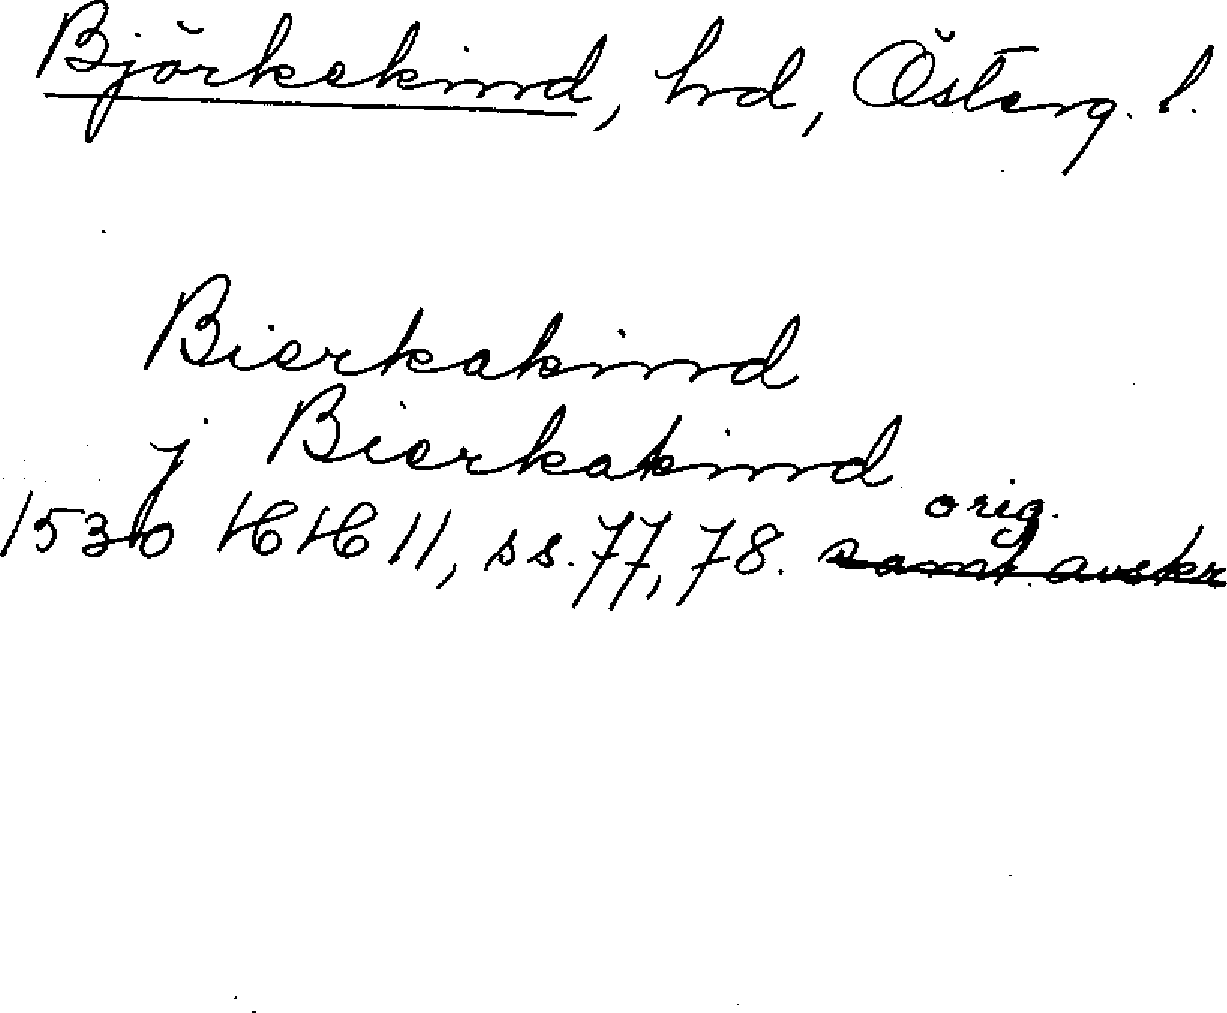 Björkekind, hd, Österg. l.
Bierkakind
j Bierkakind
1530 HH 11, ss. 77, 78. orig. samt. avskr